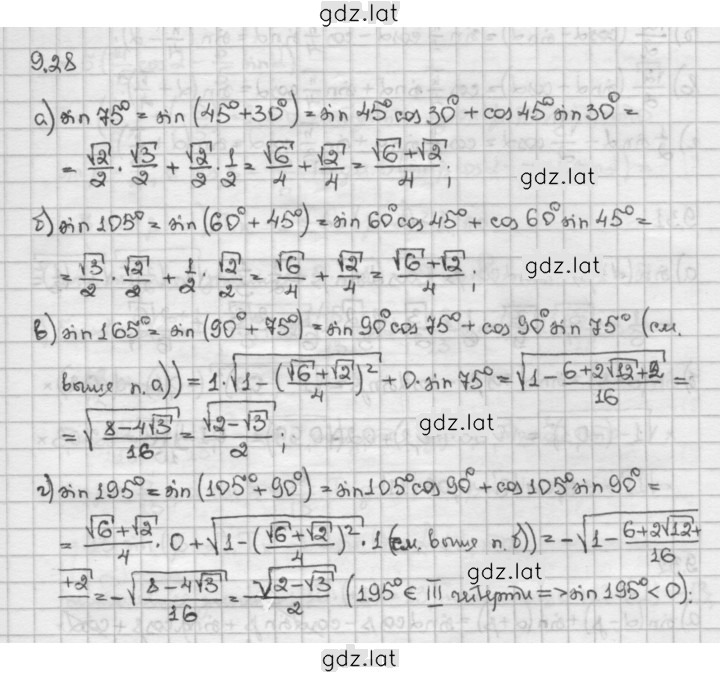 gdz.lat
9.28
а) sin 75° = sin (45° + 30°) = sin 45° cos 30° + cos 45° sin 30° =
= √2/2 · √3/2 + √2/2 · 1/2 = √6/4 + √2/4 = (√6 + √2)/4 ;
gdz.lat
б) sin 105° = sin (60° + 45°) = sin 60° cos 45° + cos 60° sin 45° =
= √3/2 · √2/2 + 1/2 · √2/2 = √6/4 + √2/4 = (√6 + √2)/4 ;
gdz.lat
в) sin 165° = sin (90° + 75°) = sin 90° cos 75° + cos 90° sin 75° (см.
выше п. а)) = 1 · √(1 - ((√6 + √2)/4)²) + 0 · sin 75° = √(1 - (6 + 2√12 + 2)/16) =
= √((8 - 4√3)/16) = √(2 - √3)/2 ;
gdz.lat
г) sin 195° = sin (105° + 90°) = sin 105° cos 90° + cos 105° sin 90° =
= (√6 + √2)/4 · 0 + √(1 - ((√6 + √2)/4)²) · 1 (см. выше п. б)) = -√(1 - (6 + 2√12 +
+2)/16 = -√((8 - 4√3)/16) = -√(2 - √3)/2 (195° ∈ III четверти => sin 195° < 0);
gdz.lat
gdz.lat